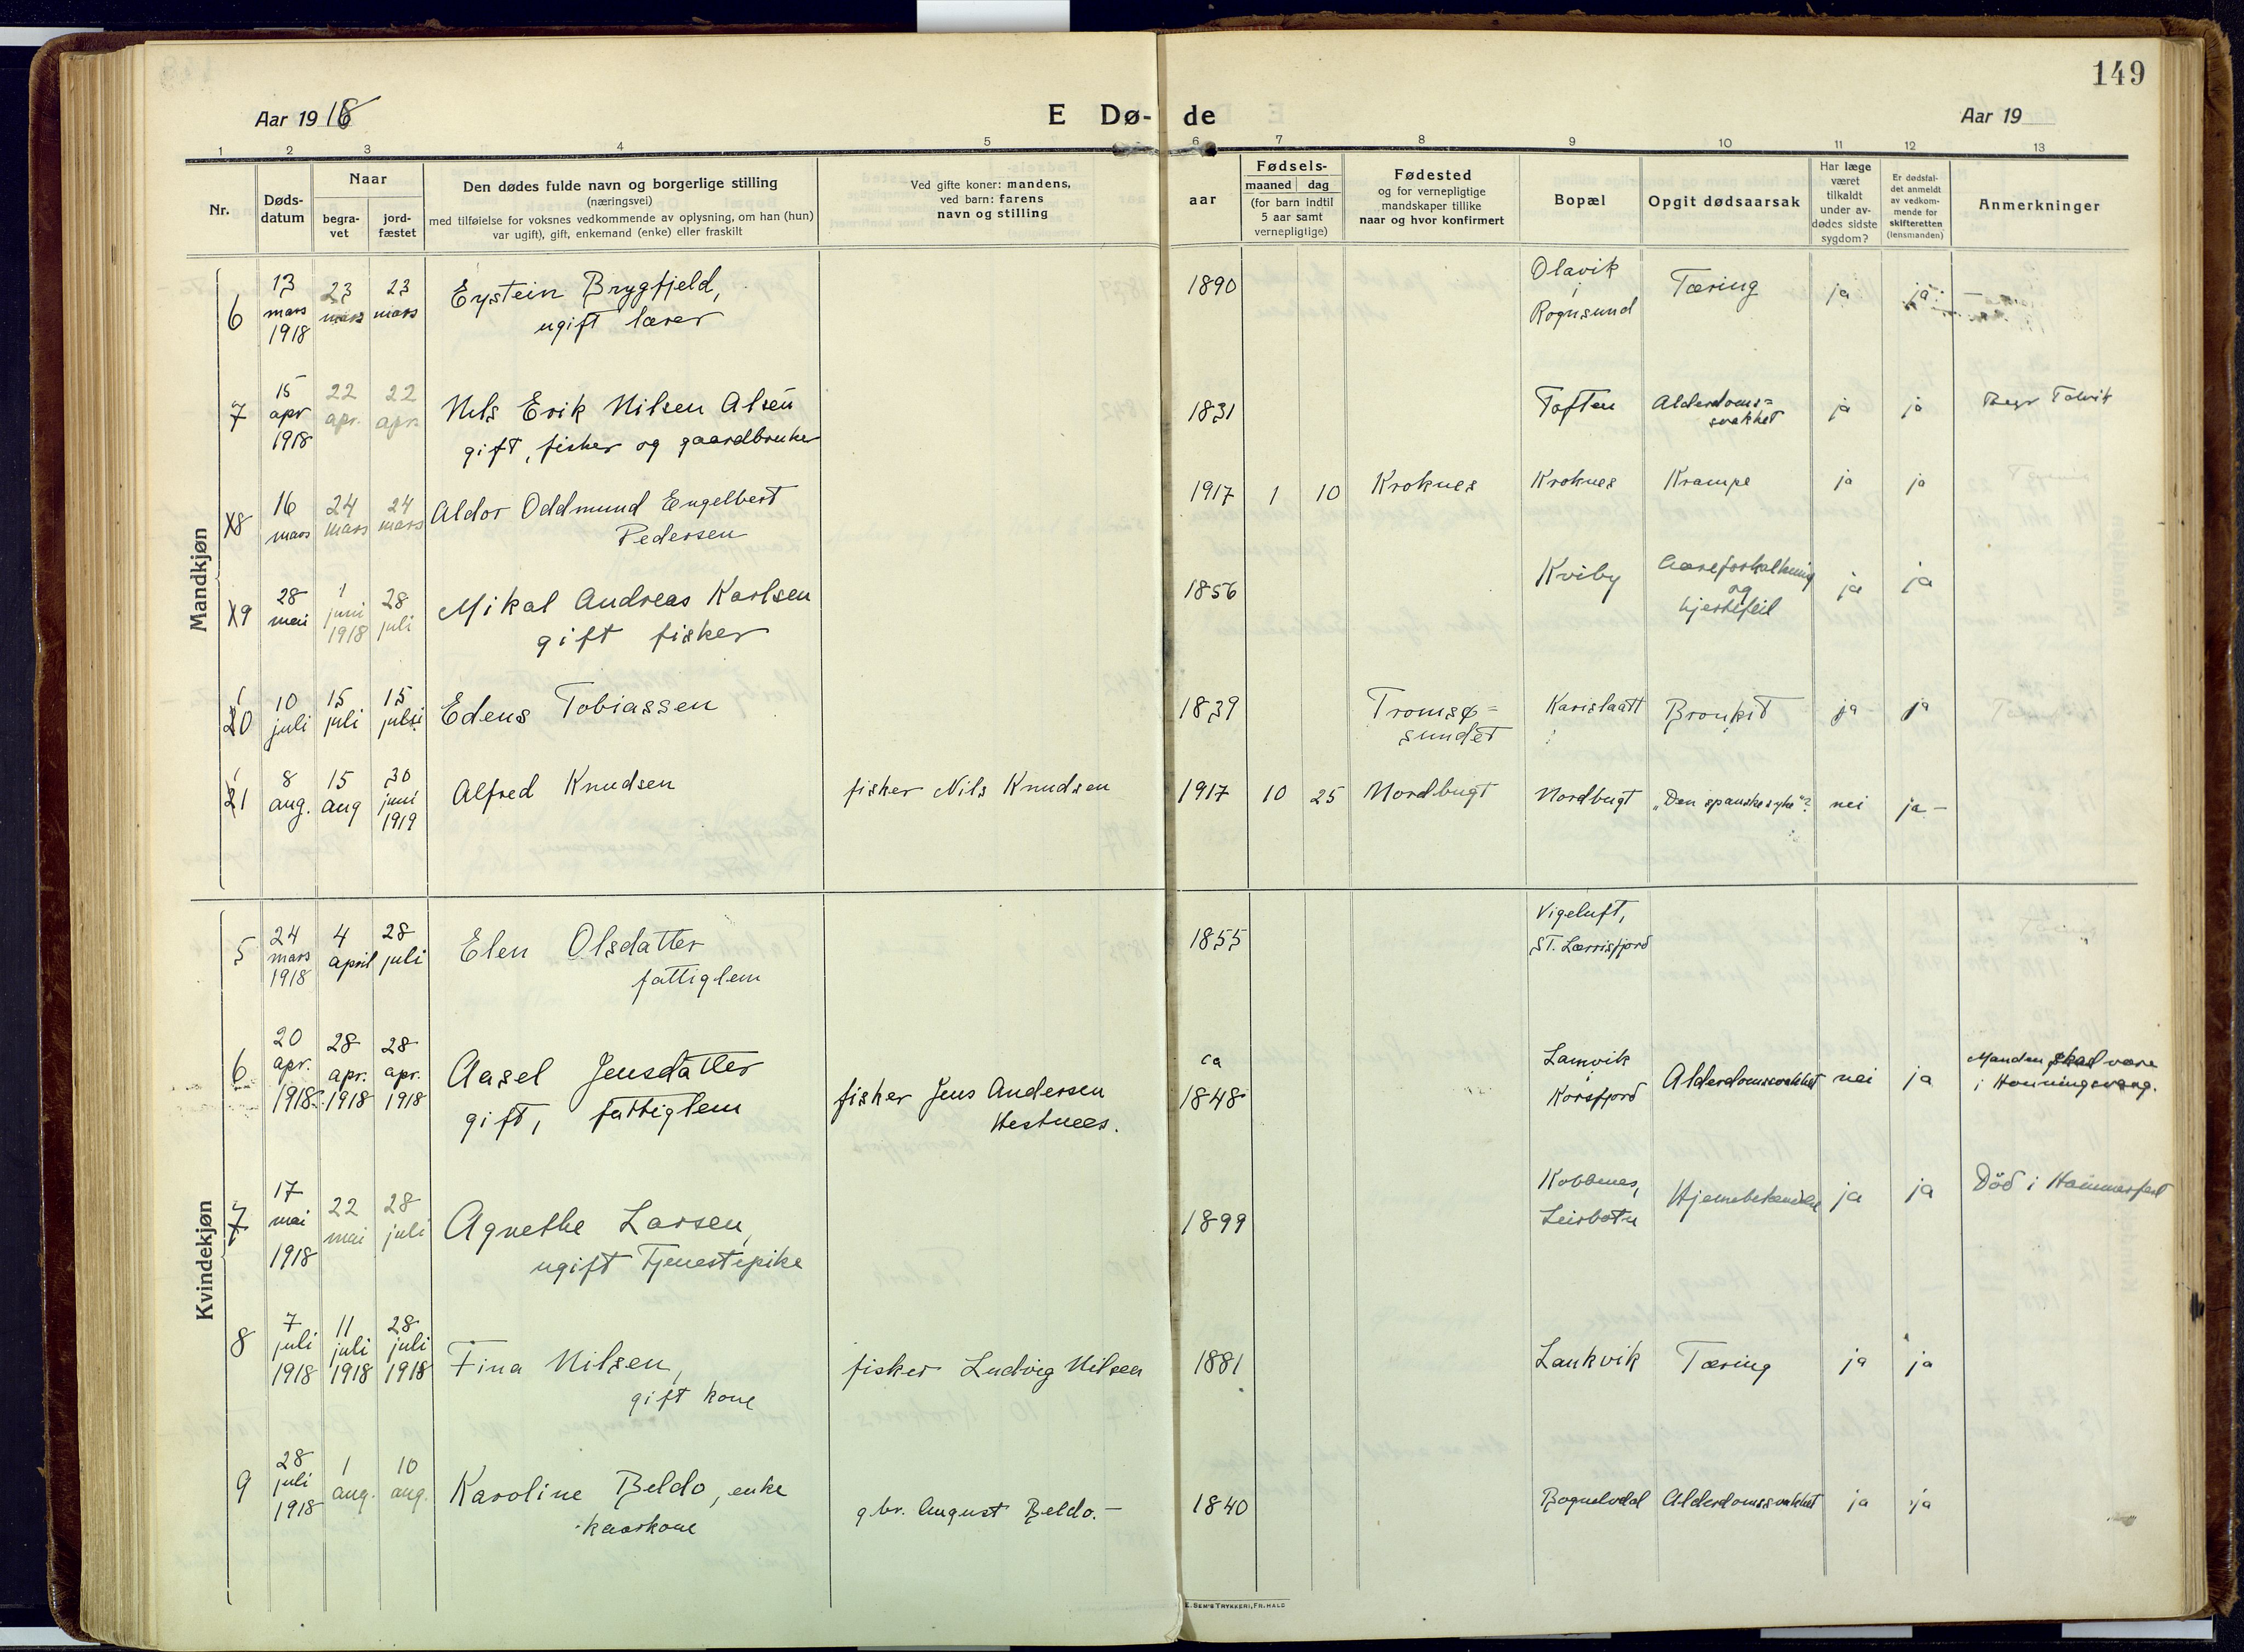 149
Aar 1918
E Dø- de
Aar 19
1 2 3 4 5 6 7 8 9 10 11 12 13
Nr.
Døds-
datum
Naar
begra-
vet
jord-
fæstet
Den dødes fulde navn og borgerlige stilling
(næringsvei)
med tilføielse for voksnes vedkommende av oplysning, om han (hun)
var ugift), gift, enkemand (enke) eller fraskilt
Ved gifte koner: mandens,
ved barn: farens
navn og stilling
aar
Fødsels-
maaned dag
(for barn indtil
5 aar samt
vernepligtige)
Fødested
og for vernepligtige
mandskaper tillike
naar og hvor konfirmert
Bopæl
Opgit dødsaarsak
Har læge
været
tilkaldt
under av-
dødes sidste
sygdom?
Er dødsfal-
det anmeldt
av vedkom-
mende for
skifteretten
(lensmanden)
Anmerkninger
Mandkjøn
6
13
mars
1918
23
mars
23
mars
Eystein Brygfjeld,
ugift lærer
1890
Olavik
i
Rognsund
Tæring
ja
ja
7
15
apr
1918
22
apr.
22
apr.
Nils Erik Nilsen Alsén
gift, fisker og gaardbruker
1831
Toften
Alderdoms=
svakhet
ja
ja
Begr Talvik
8
16
mars
24
mars
24
mars
Aldor Oddmund Engelbert
Pedersen
1917 1 10
Kroknes
Kroknes
Krampe
ja
ja
9
28
mai
1
juni
1918
28
juli
Mikal Andreas Karlsen
gift fisker
1856
Kviby
Aareforkalkning
og
hjertefeil
ja
ja
10
10
juli
15
juli
15
juli
Edens Tobiassen
1839
Tromsø=
sundet
Karislaatt
Bronkit
ja
ja
11
8
aug.
15
aug
30
juni
1919
Alfred Knudsen
fisker Nils Knudsen
1917 10 25
Nordbugt
Nordbugt
"Den spanske syke"?
nei
ja -
Kvindekjøn
5
24
mars
1918
4
april
28
juli
Elen Olsdatter
fattiglem
1855
Vigeluft,
St. Lærrisfjord
6
20
apr.
1918
28
apr.
1918
28
apr.
1918
Aasel Jensdatter
gift, fattiglem
fisker Jens Andersen
Hestnes.
ca
1848
Lamvik
i
Korsfjord
Alderdomssvakhet
nei
ja
Manden skal være
i Honningsvaag.
7
17
mai
1918
22
mai
28
juli
Agnethe Larsen,
ugift Tjenestepike
1899
Kobbenes,
Leirbotn
ja
ja
Död i Hammerfest
8
7
juli
1918
11
juli
1918
28
juli
1918
Fina Nilsen,
gift kone
fisker Ludvig Nilsen
1881
Lankvik
Tæring
ja
ja
9
28
juli
1918
1
aug.
10
aug.
Karoline Beldo, enke
kaarkone
gbr. August Beldo. -
1840
Bognelvdal
Alderdomssvakhet
ja
ja
E. SEM'S TRYKKERI, FR.HALD